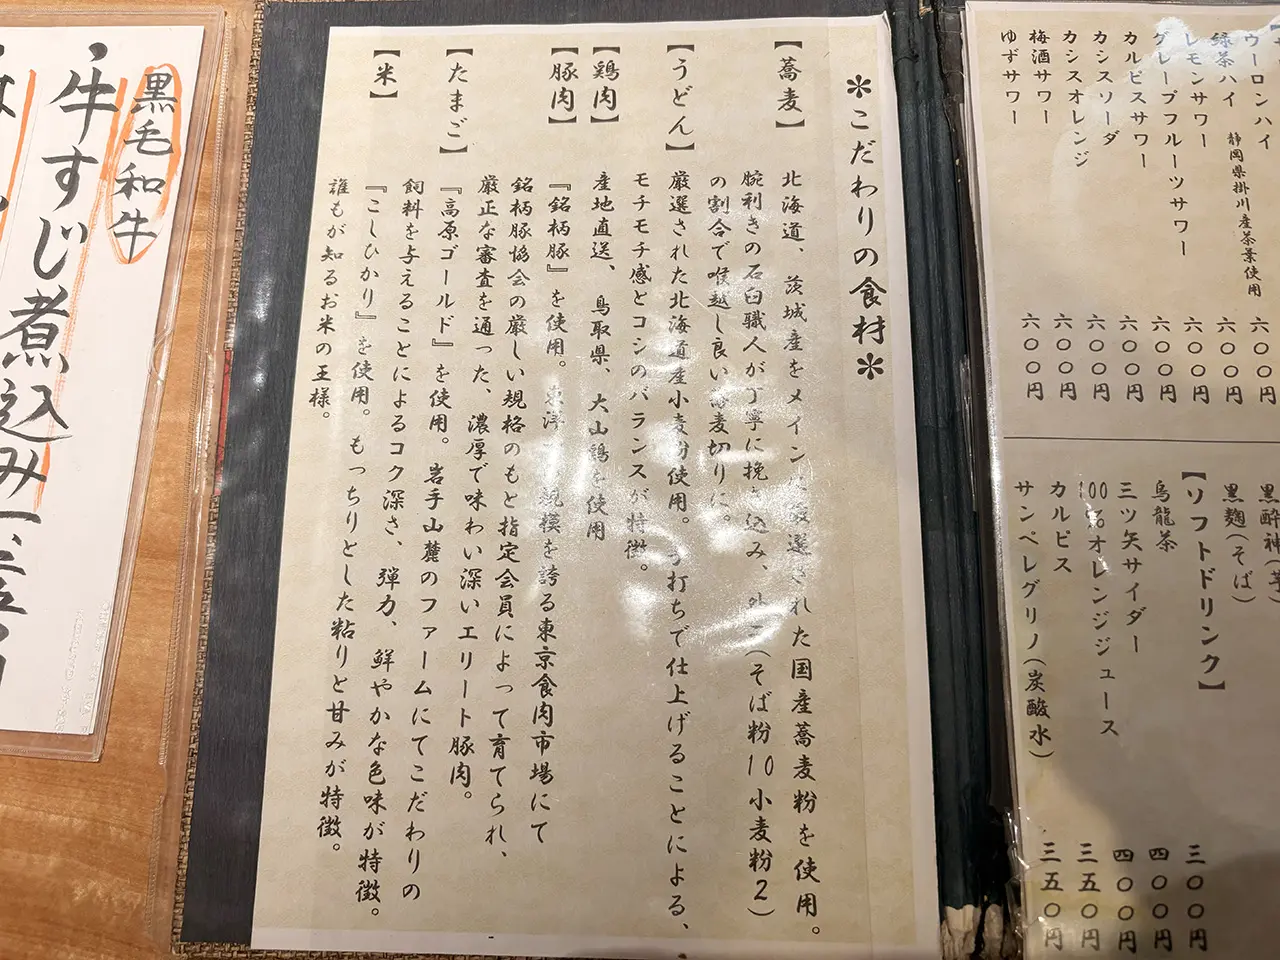 *こだわりの食材*
【蕎麦】
北海道、茨城産をメインに厳選された国産蕎麦粉を使用。
腕利きの石臼職人が丁寧に挽き込み、外二(そば粉10小麦粉2)
の割合で喉越し良い蕎麦切りに。
【うどん】
厳選された北海道産小麦粉使用。手打ちで仕上げることによる、
モチモチ感とコシのバランスが特徴。
【鶏肉】
産地直送、鳥取県、大山鶏を使用
【豚肉】
『銘柄豚』を使用。東洋一の規模を誇る東京食肉市場にて
銘柄豚協会の厳しい規格のもと指定会員によって育てられ、
厳正な審査を通った、濃厚で味わい深いエリート豚肉。
【たまご】
『高原ゴールド』を使用。岩手山麓のファームにてこだわりの
飼料を与えることによるコク深さ、弾力、鮮やかな色味が特徴。
【米】
『こしひかり』を使用。もっちりとした粘りと甘みが特徴。
誰もが知るお米の王様。
黒毛和牛
牛すじ煮込み
ウーロンハイ 六〇〇円
緑茶ハイ 静岡県掛川産茶葉使用 六〇〇円
レモンサワー 六〇〇円
グレープフルーツサワー 六〇〇円
カルピスサワー 六〇〇円
カシスソーダ 六〇〇円
カシスオレンジ 六〇〇円
梅酒サワー 六〇〇円
ゆずサワー
黒酔神(芋)
黒麹(そば)
【ソフトドリンク】
烏龍茶 三〇〇円
三ツ矢サイダー 四〇〇円
100%オレンジジュース 四〇〇円
カルピス 三五〇円
サンペレグリノ(炭酸水) 三五〇円